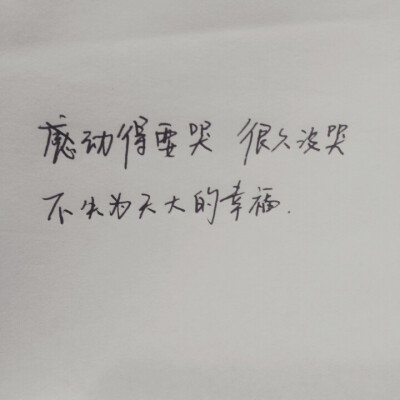 感动得要哭 很久没哭
不失为天大的幸福.